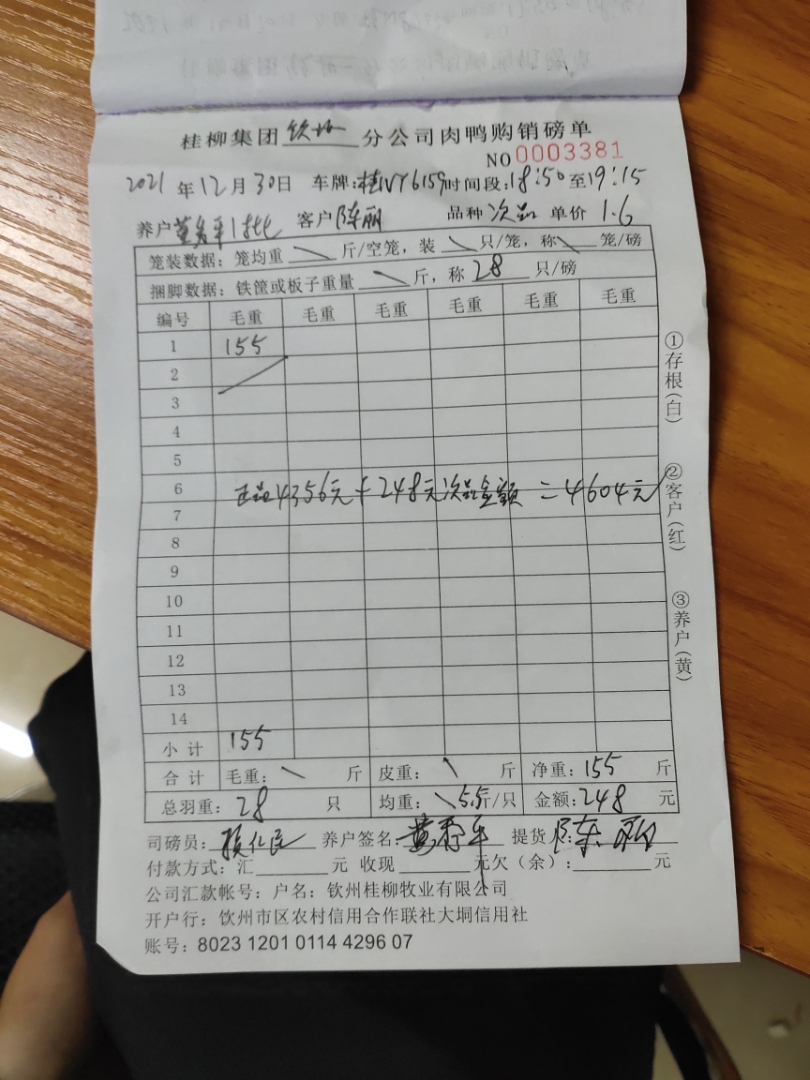 桂柳集团 钦州 分公司肉鸭购销磅单
NO 0003381
2021 年 12 月 30 日 车牌: 桂NY6159 时间段: 18:50 至 19:15
养户 1批 客户 陈丽 品种 次品 单价 1.6
笼装数据: 笼均重 \ 斤/空笼, 装 \ 只/笼, 称 \ 笼/磅
捆脚数据: 铁筐或板子重量 \ 斤, 称 28 只/磅
编号 毛重 毛重 毛重 毛重 毛重 毛重
1 155
2
3
4
5
6
正品4356元+248元次品金额=4604元
7
8
9
10
11
12
13
14
小计 155
合计 毛重: \ 斤 皮重: \ 斤 净重: 155 斤
总羽重: 28 只 均重: \5.5斤/只 金额: 248 元
司磅员: 养户签名: 提货 陈丽
付款方式: 汇 元 收现 元欠(余): 元
公司汇款帐号: 户名: 钦州桂柳牧业有限公司
开户行: 饮州市区农村信用合作联社大垌信用社
账号: 8023 1201 0114 4296 07
①存根(白)
②客户(红)
③养户(黄)